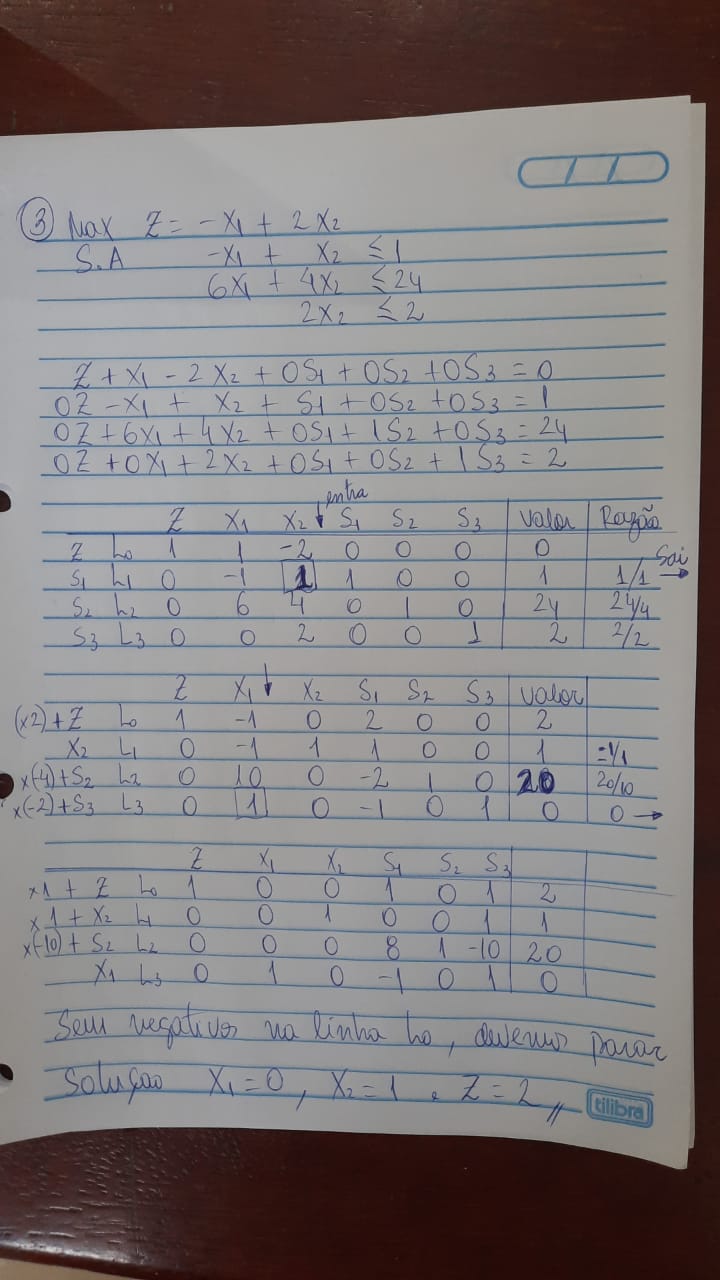 3 Max Z = -X1 + 2X2
S.A -X1 + X2 ≤ 1
6X1 + 4X2 ≤ 24
2X2 ≤ 2
Z + X1 - 2X2 + 0S1 + 0S2 + 0S3 = 0
0Z - X1 + X2 + S1 + 0S2 + 0S3 = 1
0Z + 6X1 + 4X2 + 0S1 + 1S2 + 0S3 = 24
0Z + 0X1 + 2X2 + 0S1 + 0S2 + 1S3 = 2
entra
Z X1 X2 ↓ S1 S2 S3 Valor Razão
Z L0 1 1 -2 0 0 0 0
S1 L1 0 -1 1 1 0 0 1 1/1 Sai →
S2 L2 0 6 4 0 1 0 24 24/4
S3 L3 0 0 2 0 0 1 2 2/2
Z X1 ↓ X2 S1 S2 S3 Valor
(x2)+Z L0 1 -1 0 2 0 0 2
X2 L1 0 -1 1 1 0 0 1 =-1/1
x(-4)+S2 L2 0 10 0 -2 1 0 20 20/10
x(-2)+S3 L3 0 1 0 -1 0 1 0 0 →
Z X1 X2 S1 S2 S3
x1 + Z L0 1 0 0 1 0 1 2
x1 + X2 L1 0 0 1 0 0 1 1
x(-10) + S2 L2 0 0 0 8 1 -10 20
X1 L3 0 1 0 -1 0 1 0
Sem negativos na linha L0, devemos parar
Solução X1 = 0, X2 = 1 e Z = 2 //
tilibra